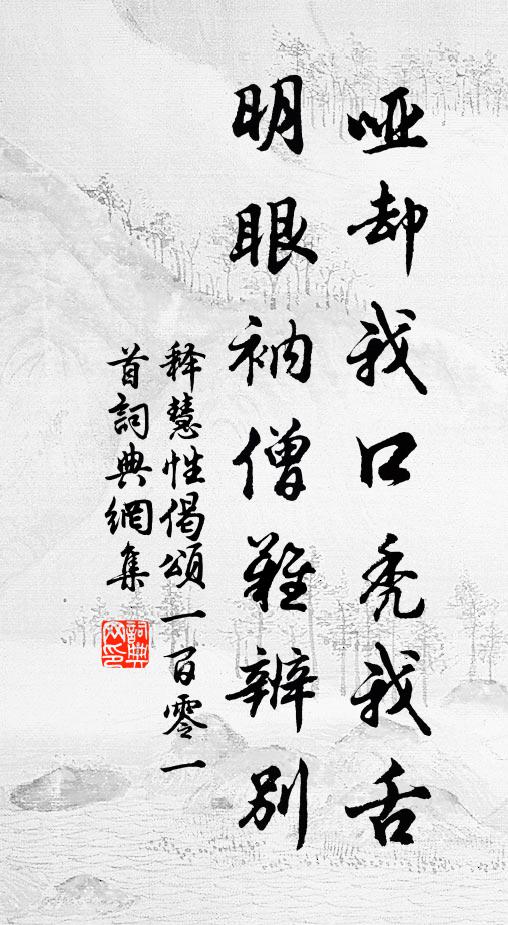 哑却我口秃我舌
明眼衲僧難辨別
释慧性偈頌一百零一
首詞典網集
詞典
网印